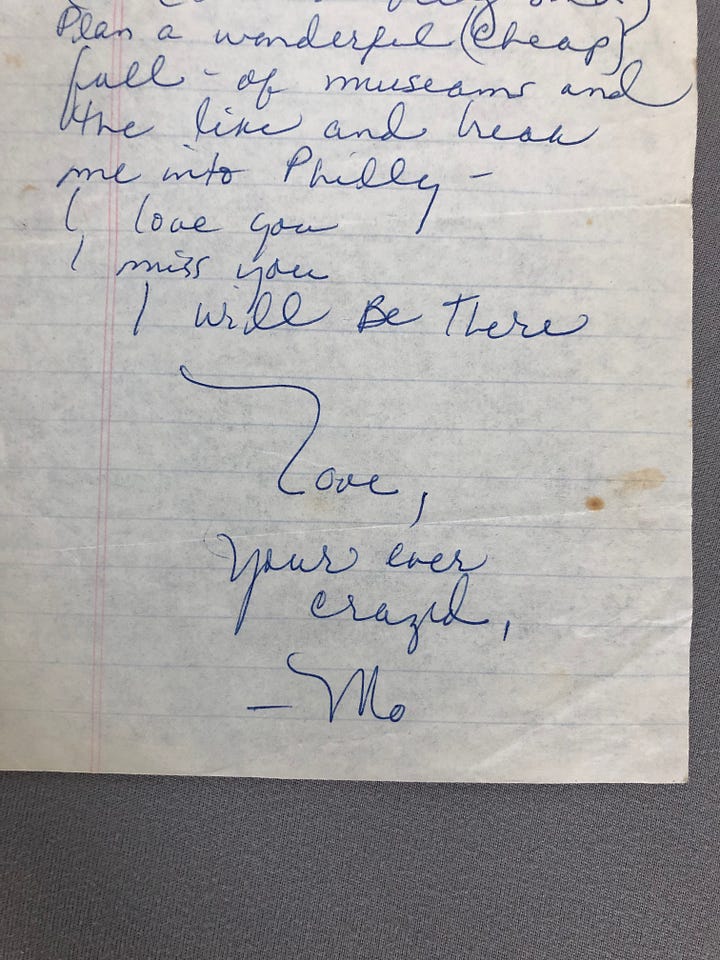 Plan a wonderful (cheap)
full - of museams and
the like and break
me into Philly -
I love you
I miss you
I will Be There
Love,
Your ever
crazed,
- Mo